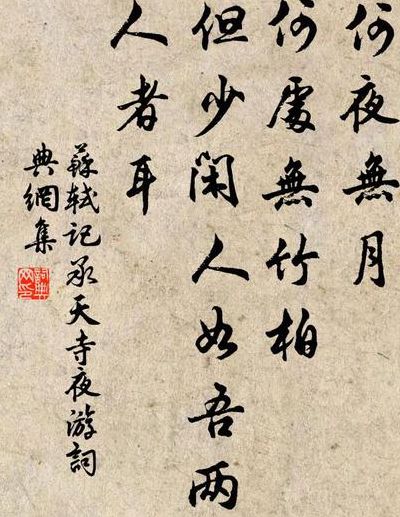 何夜無月
何處無竹柏
但少閑人如吾两
人者耳
蘇軾記承天寺夜游詞
典網集
詞典网印